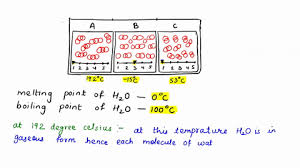 A B C
1 2 3 4 5 1 2 3 4 5 1 2 3 4 5
192°C -15°C 53°C
melting point of H₂O - 0°C
boiling point of H₂O - 100°C
at 192 degree celsius :- at this temprature H₂O is in
gaseous form hence each molecule of wat